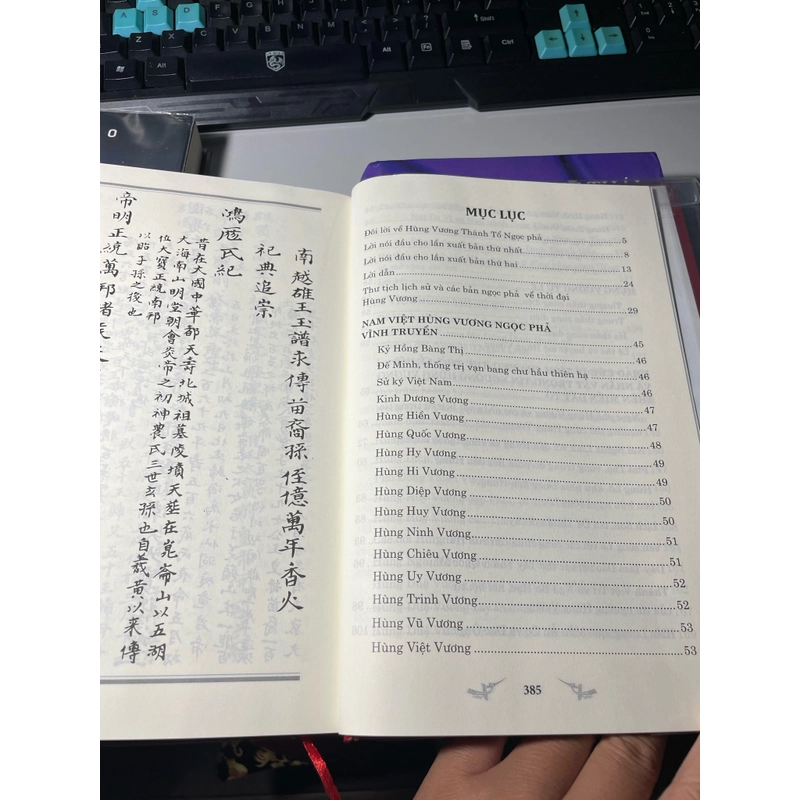 A
S
D
Shift
Alt
Alt
Fn
Ctrl
End
O
南越雄王玉譜永傳苗裔孫侄億萬年香火
祀典追崇
鴻厖氏紀
昔在大國中華都天壽北城祖墓陵墳天葬在崑崙山以五湖
大海南山明堂朝會炎帝之初神農氏三世玄孫也自羲黄以来傳
位大寶正統南邦
以昭子孫之後也
帝明正統萬邦諸
MỤC LỤC
Đôi lời về Hùng Vương Thánh Tổ Ngọc phả 5
Lời nói đầu cho lần xuất bản thứ nhất 8
Lời nói đầu cho lần xuất bản thứ hai 13
Lời dẫn 24
Thư tịch lịch sử và các bản ngọc phả về thời đại
Hùng Vương 29
NAM VIỆT HÙNG VƯƠNG NGỌC PHẢ
VĨNH TRUYỀN 45
Kỷ Hồng Bàng Thị 46
Đế Minh, thống trị vạn bang chư hầu thiên hạ 46
Sử ký Việt Nam 46
Kinh Dương Vương 47
Hùng Hiền Vương 47
Hùng Quốc Vương 48
Hùng Hy Vương 49
Hùng Hi Vương 49
Hùng Diệp Vương 50
Hùng Huy Vương 50
Hùng Ninh Vương 51
Hùng Chiêu Vương 51
Hùng Uy Vương 52
Hùng Trinh Vương 52
Hùng Vũ Vương 53
Hùng Việt Vương 53
385